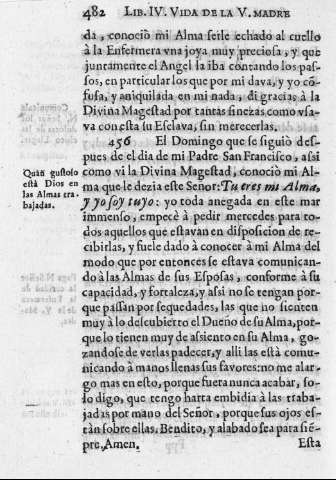 482 LIB. IV. VIDA DE LA V. MADRE
da, conociò mi Alma serle echado al cuello
à la Enfermera vna joya muy preciosa, y que
juntamente el Angel la iba contando los pas-
sos, en particular los que por mi dava, y yo cõ-
fusa, y aniquilada en mi nada, di gracias à la
Divina Magestad por tantas finezas como vsa-
va con esta su Esclava, sin merecerlas.
456 El Domingo que se siguiò des-
pues de el dia de mi Padre San Francisco, assi
como vi la Divina Magestad, conociò mi Al-
ma que le dezia este Señor: Tu eres mi Alma,
y yo soy tuyo: yo toda anegada en este mar
immenso, empecè à pedir mercedes para to-
dos aquellos que estavan en disposicion de re-
cibirlas, y fuele dado à conocer à mi Alma del
modo que por entonces se estava comunican-
do à las Almas de sus Esposas, conforme à su
capacidad, y fortaleza, y assi no se tengan por-
que passan por sequedades, las que no sienten
muy à lo descubierto el Dueño de su Alma, por-
que lo tienen muy de assiento en su Alma, go-
zandose de verlas padecer, y alli las està comu-
nicando à manos llenas sus favores: no me alar-
go mas en esto, porque fuera nunca acabar, so-
lo digo, que tengo harta embidia à las traba-
jadas por mano del Señor, porque sus ojos es-
tàn sobre ellas. Bendito, y alabado sea para siẽ-
pre, Amen. Esta
Quan gustoso
està Dios en
las Almas tra-
bajadas.